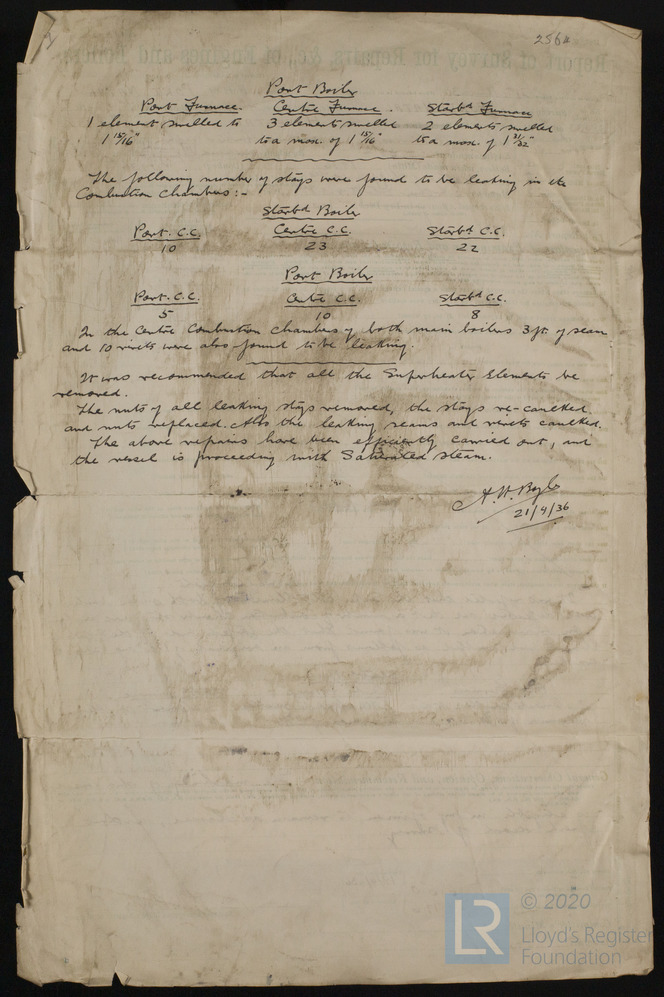 2564
Port Boiler
Port Furnace. Centre Furnace. Starbd Furnace
1 element swelled to 3 elements swelled 2 elements swelled
1 15/16" to a max. of 1 15/16" to a max. of 1 31/32"
The following number of stays were found to be leaking in the
Combustion Chambers:-
Starbd Boiler
Port. C.C. Centre C.C. Starbd C.C.
10 23 22
Port Boiler
Port. C.C. Centre C.C. Starbd C.C.
5 10 8
In the Centre Combustion Chambers of both main boilers 3 ft. of seam
and 10 rivets were also found to be leaking.
It was recommended that all the Superheater Elements be
removed.
The nuts of all leaking stays removed, the stays re-caulked
and nuts replaced. Also the leaking seams and rivets caulked.
The above repairs have been efficiently carried out, and
the vessel is proceeding with Saturated steam.
A. W. Boyle
21/4/36
LR © 2020
Lloyd's Register
Foundation